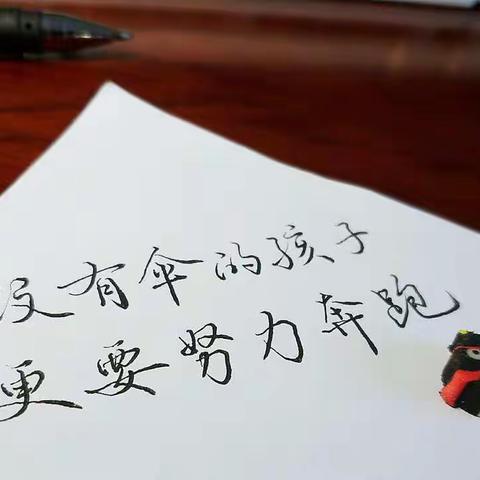 没有伞的孩子
更要努力奔跑